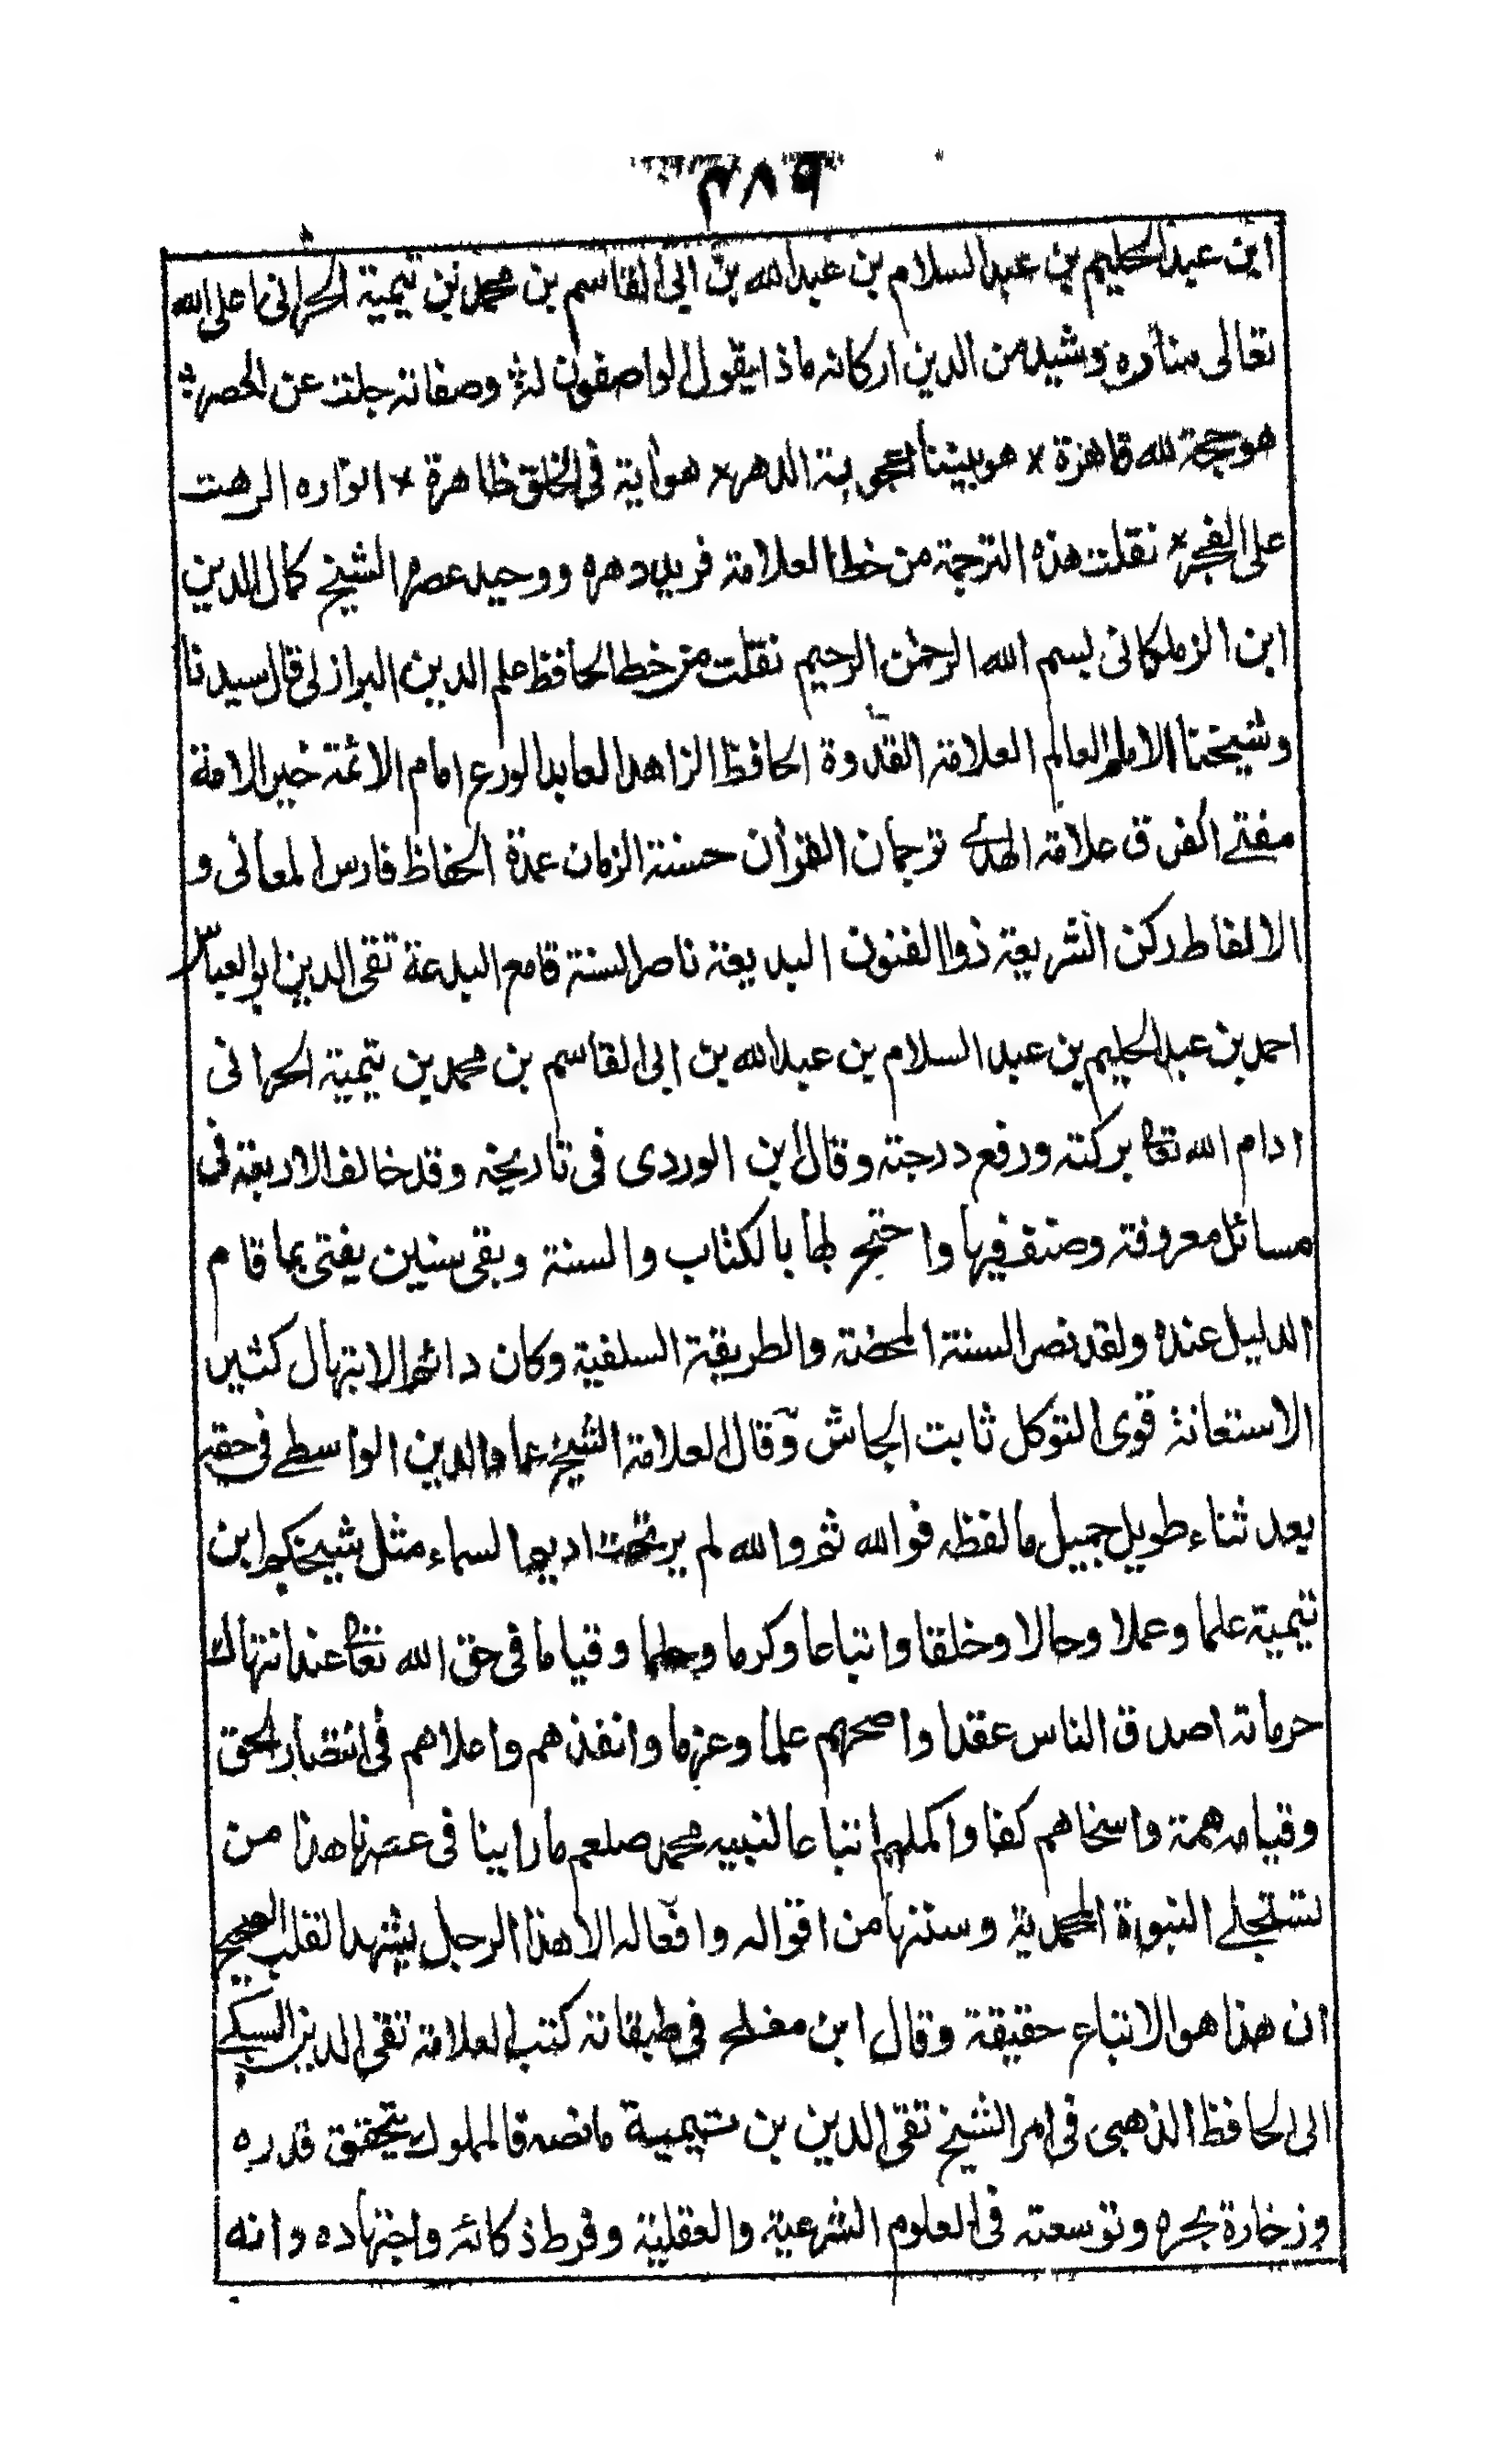 ٣٨٩
ابن عبد الحليم بن عبد السلام بن عبد الله بن ابي القاسم بن محمد بن تيمية الحراني اعلى الله
تعالى مناره وشيد من الدين اركانه ماذا يقول الواصفون له وصفاته جلت عن الحصر
هو حجة لله قاهرة × هو بيننا اعجوبة الدهر × هو اية في الخلق ظاهرة × انواره اربت
على الفجر × نقلت هذه الترجمة من خط العلامة فريد دهره ووحيد عصره الشيخ كمال الدين
ابن الزملكاني بسم الله الرحمن الرحيم نقلت من خط الحافظ علم الدين البرازلي قال سيدنا
وشيخنا الامام العالم العلامة القدوة الحافظ الزاهد العابد الورع امام الائمة خير الامة
مفتي الفرق علامة الهدى ترجمان القرآن حسنة الزمان عمدة الحفاظ فارس المعاني و
الالفاظ ركن الشريعة ذوا الفنون البديعة ناصر السنة قامع البدعة تقي الدين ابو العباس
احمد بن عبد الحليم بن عبد السلام بن عبد الله بن ابي القاسم بن محمد بن تيمية الحراني
ادام الله تعا بركته ورفع درجته وقال ابن الوردى في تاريخه وقد خالف الاربعة في
مسائل معروفة وصنف فيها واحتج لها بالكتاب والسنة وبقي سنين يفتي بما قام
الدليل عنده ولقد نصر السنة المحضة والطريقة السلفية وكان دائم الابتهال كثير
الاستعانة قوى التوكل ثابت الجاش وقال العلامة الشيخ عماد الدين الواسطے في حقه
بعد ثناء طويل جميل ما لفظه فوالله ثم والله لم ير تحت اديم السماء مثل شيخكم ابن
تيمية علما وعملا وحالا وخلقا واتباعا وكرما وحلما وقياما في حق الله تعا عند انتهاك
حرماته اصدق الناس عقدا واصحهم علما وعزما وانفذهم واعلاهم في انتصار الحق
وقيامه همة واسخاهم كفا واكملهم اتباعا لنبيه محمد صلعم ما راينا في عصرنا هذا من
تستجلے النبوة المحمدية وسننها من اقواله وافعاله الا هذا الرجل يشهد القلب الصحيح
ان هذا هو الاتباع حقيقة وقال ابن مفلح في طبقاته كتب العلامة تقي الدين السبكے
الى الحافظ الذهبي في امر الشيخ تقي الدين بن تيمية ما نصه فالمملوك يتحقق قدره
وزخارة بحره وتوسعته في العلوم الشرعية والعقلية وفرط ذكائه واجتهاده وانه